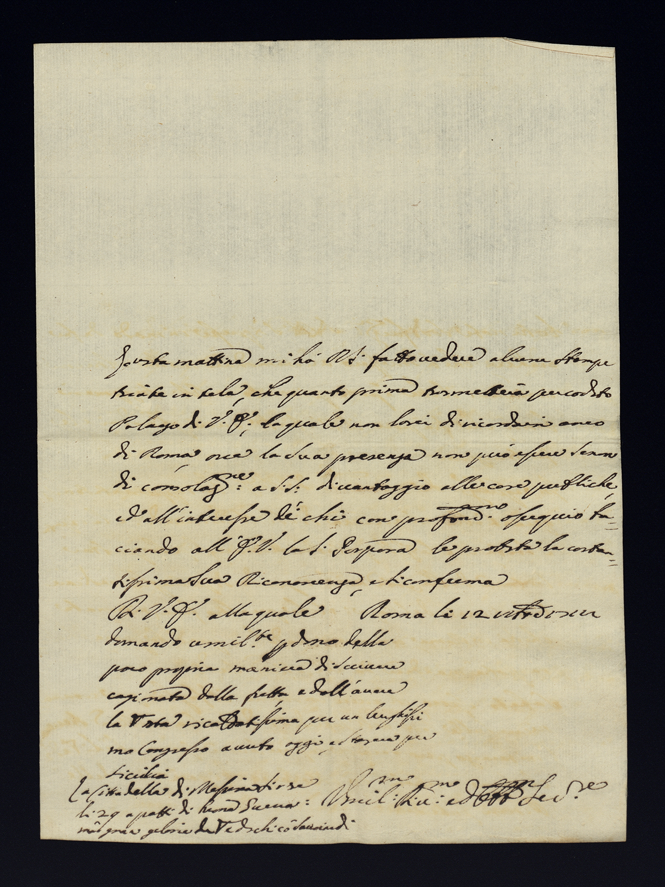 Questa mattina mi hà N. S. fatto vedere alcune stampe
tirate in tela, che quanto prima trasmetterà per codesto
Palazzo di V. E., la quale non lasci di ricordarsi anco
di Roma, ove la sua presenza non può essere senon
di consolazne: a S. S. di vantaggio alle cose publiche,
ed all'interesse de chi con profondmo: ossequio ba=
ciando all' E. V. la S. Porpora le protesta la costan=
tissima sua Riconoscenza, e si conferma
Di V. E. alla quale Roma li 12
domando umilte perdono della
poco propria maniera di scrivere
cagionata dalla fretta e dall'avere
la Testa per un lunghissi
mo Congresso avuto oggi e stasera per
Sicilia
La Cittadella di Messina si rese
li 29 a patti di buona Guerra:
gloria de Tedeschi
Umil:mo Div:mo ed Obb:mo Serv:re